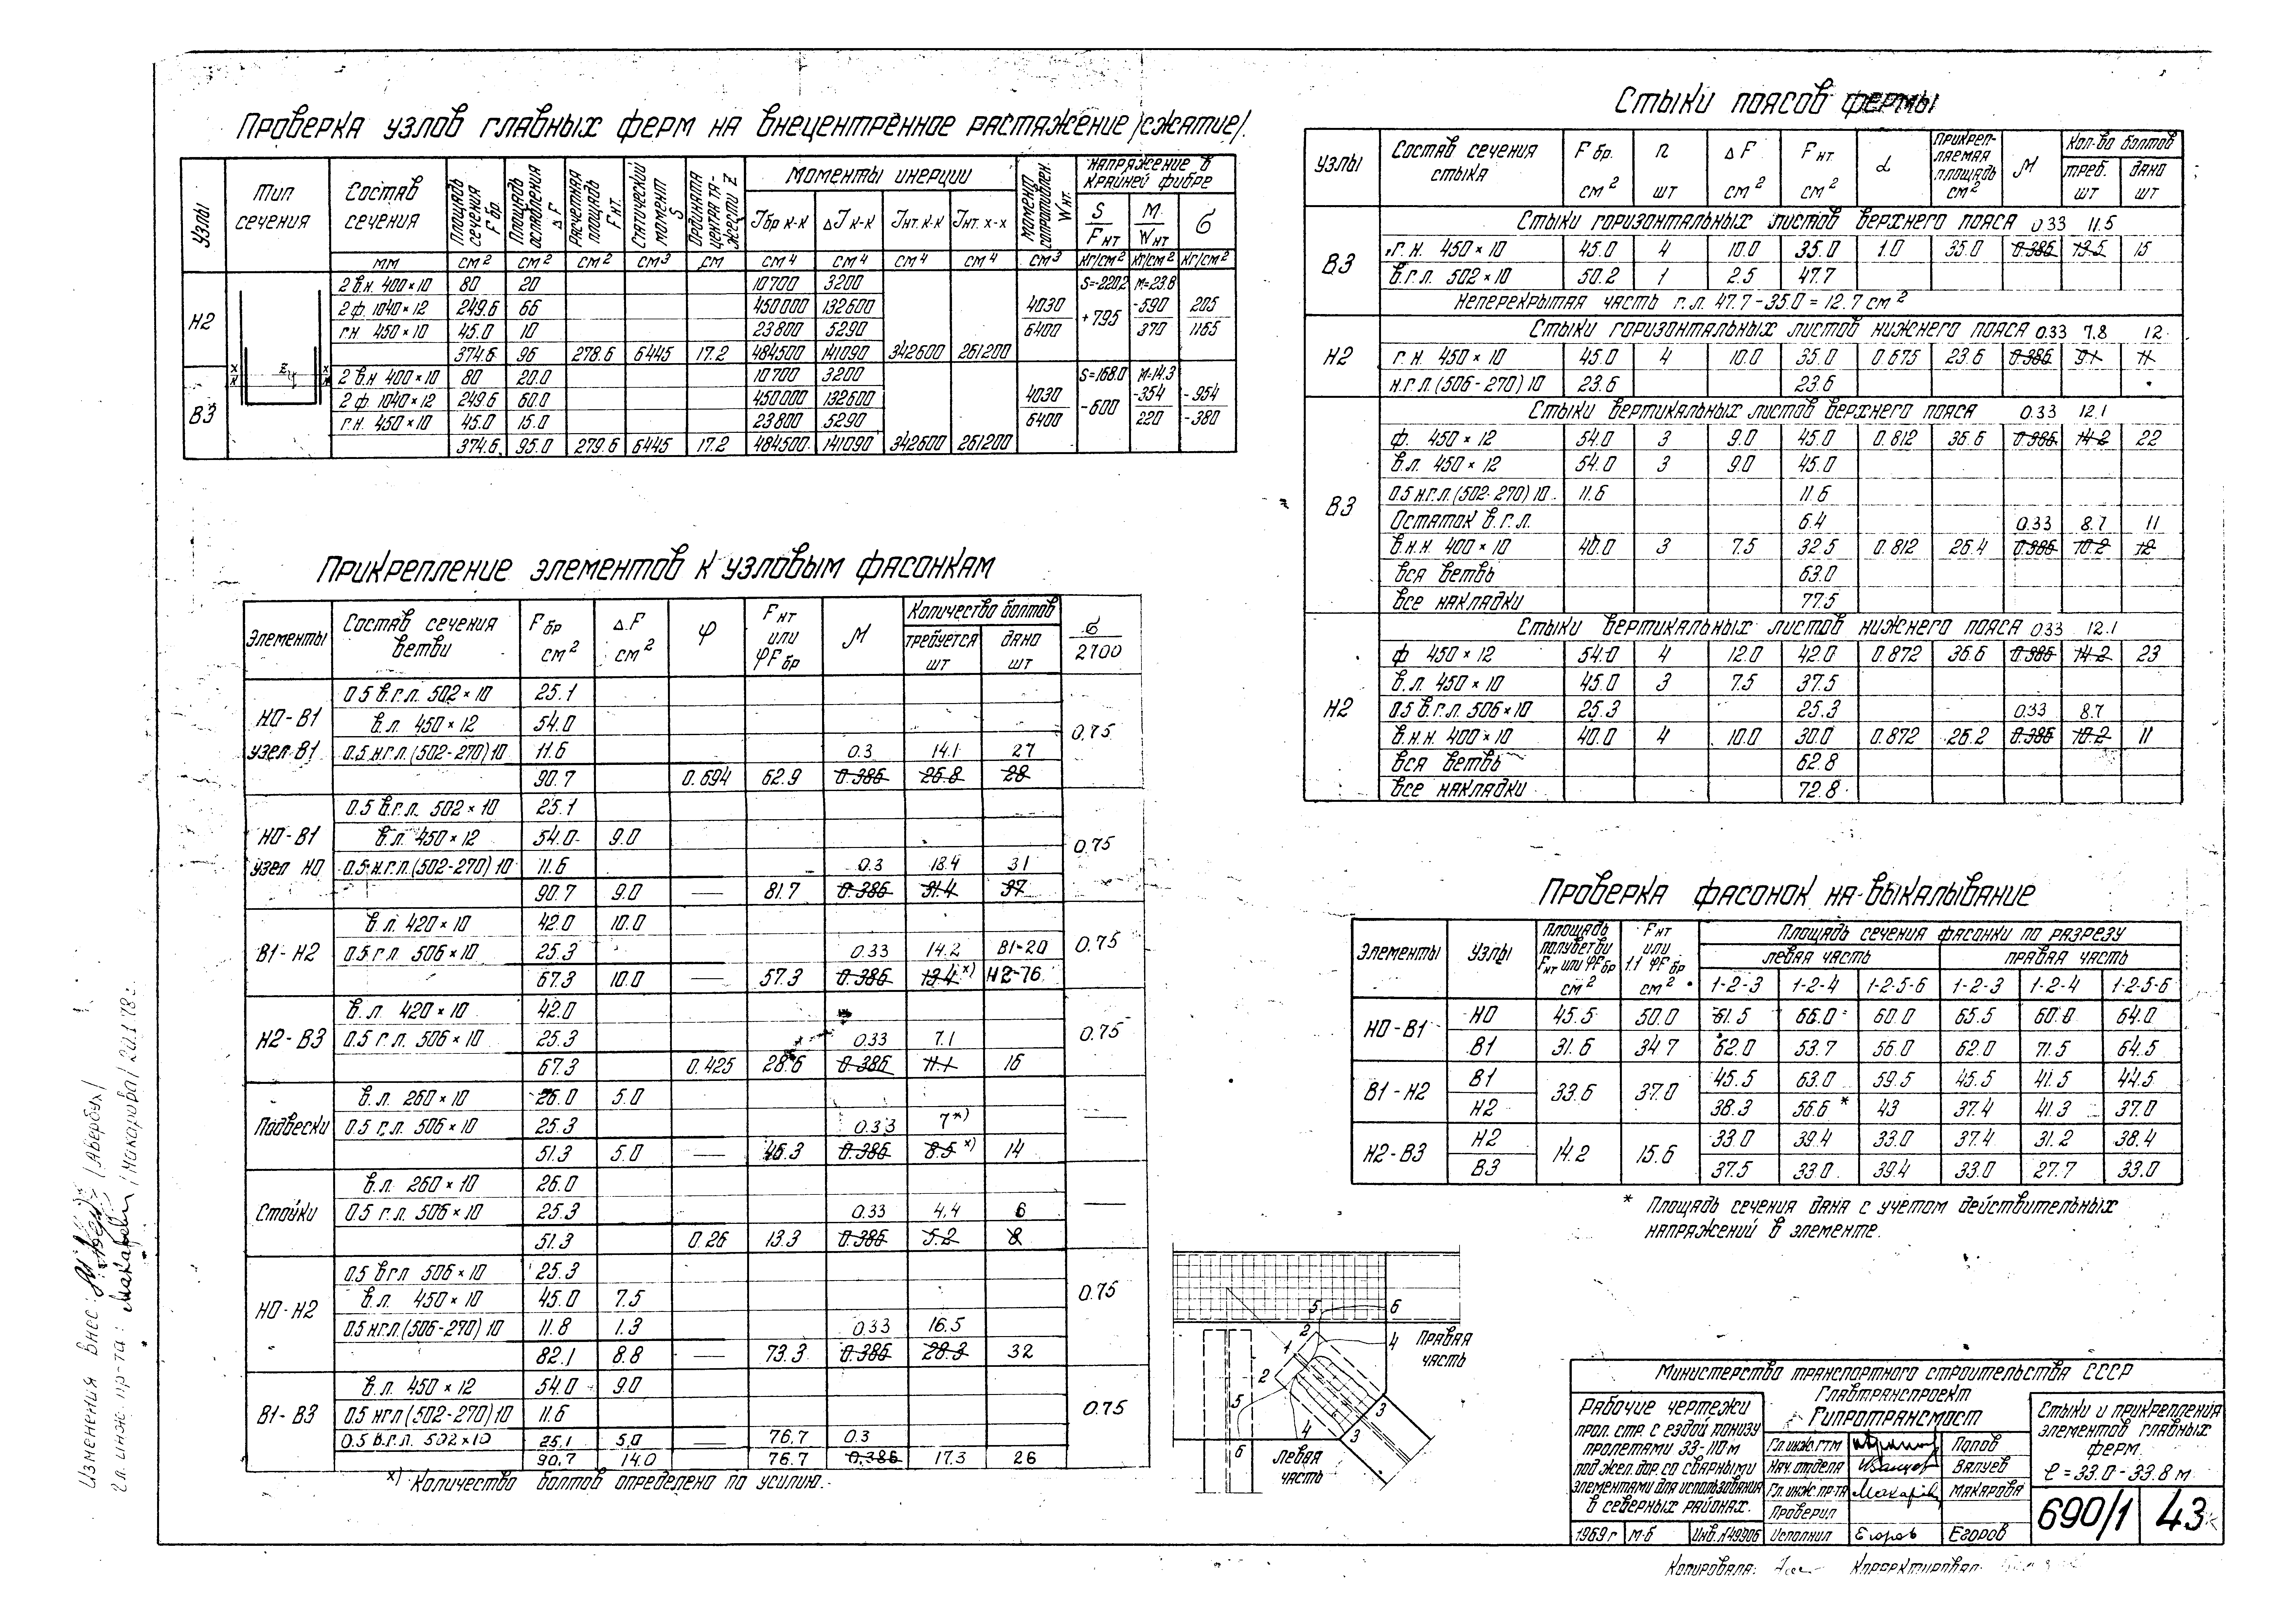 Проверка узлов главных ферм на внецентренное растяжение /сжатие/.
Узлы | Тип сечения | Состав сечения | Площадь сечения Fбр | Площадь ослабления ΔF | Расчетная площадь Fнт. | Статический момент S | Ордината центра тяжести Z | Моменты инерции | Момент сопротивлен. Wнт. | Напряжение в крайней фибре
Jбр к-к | ΔJ к-к | Jнт. к-к | Jнт. х-х | S/Fнт | M./Wнт | σ
мм | см² | см² | см² | см³ | см | см4 | см4 | см4 | см4 | см³ | кг/см² | кг/см² | кг/см²
Н2 | 2 в.н. 400×10 | 80 | 20 | 10700 | 3200 | S=-220,2 | M=23.8
2 ф. 1040×12 | 249.6 | 66 | 450000 | 132600 | 4030 | +795 | -590 | 205
г.н. 450×10 | 45.0 | 10 | 23800 | 5290 | 6400 | 370 | 1165
374.6 | 96 | 278.6 | 6445 | 17.2 | 484500 | 141090 | 342600 | 261200
В3 | 2 в.н 400×10 | 80 | 20.0 | 10700 | 3200 | S=168.0 | M=14.3
2 ф 1040×12 | 249.6 | 60.0 | 450000 | 132600 | 4030 | -600 | -354 | -954
г.н. 450×10 | 45.0 | 15.0 | 23800 | 5290 | 6400 | 220 | -380
374.6 | 95.0 | 279.6 | 6445 | 17.2 | 484500 | 141090 | 342600 | 261200
Прикрепление элементов к узловым фасонкам
Элементы | Состав сечения ветви | Fбр см² | Δ.F см² | φ | Fнт или φFбр | М | Количество болтов | σ/2700
требуется шт | дано шт
НО-В1 узел В1 | 0.5 в.г.л. 502×10 | 25.1 | 0.75
в.л. 450×12 | 54.0
0.5 н.г.л.(502-270)10 | 11.6 | 0.3 | 14.1 | 27
90.7 | 0.694 | 62.9 | 0.386 | 25.8 | 28
НО-В1 узел НО | 0.5 в.г.л. 502×10 | 25.1 | 0.75
в.л. 450×12 | 54.0 | 9.0
0.5 н.г.л.(502-270)10 | 11.6 | 0.3 | 18.4 | 31
90.7 | 9.0 | — | 81.7 | 0.386 | 31.4 | 37
В1-Н2 | в.л. 420×10 | 42.0 | 10.0 | 0.75
0.5 г.л 506×10 | 25.3 | 0.33 | 14.2 | В1-20
67.3 | 10.0 | — | 57.3 | 0.386 | 13.4 х) | Н2-16
Н2-В3 | в.л. 420×10 | 42.0 | 0.75
0.5 г.л. 506×10 | 25.3 | 0.33 | 7.1
67.3 | 0.425 | 28.6 | 0.386 | 11.1 | 16
Подвески | в.л. 260×10 | 26.0 | 5.0 | —
0.5 г.л. 506×10 | 25.3 | 0.33 | 7х)
51.3 | 5.0 | — | 46.3 | 0.386 | 8.5 х) | 14
Стойки | в.л. 260×10 | 26.0 | —
0.5 г.л. 506×10 | 25.3 | 0.33 | 4.4 | 6
51.3 | 0.26 | 13.3 | 0.386 | 5.2 | 8
НО-Н2 | 0.5 в.г.л 506×10 | 25.3 | 0.75
в.л. 450×10 | 45.0 | 7.5
0.5 н.г.л(506-270)10 | 11.8 | 1.3 | 0.33 | 16.5
82.1 | 8.8 | — | 73.3 | 0.386 | 28.3 | 32
В1-В3 | в.л. 450×12 | 54.0 | 9.0 | 0.75
0.5 нгл(502-270)10 | 11.6
0.5 в.г.л. 502×10 | 25.1 | 5.0 | — | 76.7 | 0.3
90.7 | 14.0 | 76.7 | 0.386 | 17.3 | 26
х) Количество болтов определено по усилию.
Стыки поясов фермы
Узлы | Состав сечения стыка | Fбр. см² | n шт | ΔF см² | Fнт. см² | α | Прикрепляемая площадь см² | М | Кол-во болтов
треб. шт | дано шт
Стыки горизонтальных листов верхнего пояса 0.33 11.5
В3 | г.н. 450×10 | 45.0 | 4 | 10.0 | 35.0 | 1.0 | 35.0 | 0.386 | 13.5 | 15
в.г.л 502×10 | 50.2 | 1 | 2.5 | 47.7
Неперекрытая часть г.л. 47.7-35.0=12.7 см²
Стыки горизонтальных листов нижнего пояса 0.33 7.8 12
Н2 | г.н. 450×10 | 45.0 | 4 | 10.0 | 35.0 | 0.675 | 23.6 | 0.386 | 9.1 | 11
н.г.л(506-270)10 | 23.6 | 23.6
Стыки вертикальных листов верхнего пояса 0.33 12.1
В3 | ф. 450×12 | 54.0 | 3 | 9.0 | 45.0 | 0.812 | 36.6 | 0.386 | 14.2 | 22
в.л. 450×12 | 54.0 | 3 | 9.0 | 45.0
0.5 н.г.л.(502-270)10 | 11.6 | 11.6
Остаток в.г.л. | 6.4 | 0.33 | 8.7 | 11
в.н.н. 400×10 | 40.0 | 3 | 7.5 | 32.5 | 0.812 | 26.4 | 0.386 | 10.2 | 12
вся ветвь | 63.0
все накладки | 77.5
Стыки вертикальных листов нижнего пояса 0.33 12.1
Н2 | ф 450×12 | 54.0 | 4 | 12.0 | 42.0 | 0.872 | 36.6 | 0.386 | 14.2 | 23
в.л. 450×10 | 45.0 | 3 | 7.5 | 37.5
0.5 в.г.л. 506×10 | 25.3 | 25.3 | 0.33 | 8.7
в.н.н. 400×10 | 40.0 | 4 | 10.0 | 30.0 | 0.872 | 26.2 | 0.386 | 10.2 | 11
вся ветвь | 62.8
все накладки | 72.8
Проверка фасонок на выкалывание
Элементы | Узлы | Площадь полуветви Fнт или φFбр см² | Fнт или 1.1 φFбр см² | Площадь сечения фасонки по разрезу
левая часть | правая часть
1-2-3 | 1-2-4 | 1-2-5-6 | 1-2-3 | 1-2-4 | 1-2-5-6
НО-В1 | НО | 45.5 | 50.0 | 61.5 | 66.0 | 60.0 | 65.5 | 60.0 | 64.0
В1 | 31.6 | 34.7 | 62.0 | 53.7 | 56.0 | 62.0 | 71.5 | 64.5
В1-Н2 | В1 | 33.6 | 37.0 | 45.5 | 63.0 | 59.5 | 45.5 | 41.5 | 44.5
Н2 | 38.3 | 56.6 * | 43 | 37.4 | 41.3 | 37.0
Н2-В3 | Н2 | 14.2 | 15.6 | 33.0 | 39.4 | 33.0 | 37.4 | 31.2 | 38.4
В3 | 37.5 | 33.0 | 39.4 | 33.0 | 27.7 | 33.0
* Площадь сечения дана с учетом действительных
напряжений в элементе.
5 6
2 4 правая
1 часть
2
5 3
4 3
6 левая
часть
Министерство транспортного строительства СССР
Главтранспроект
Гипротрансмост
Рабочие чертежи
прол. стр. с ездой понизу
пролетами 33-110 м
под жел.дор. со сварными
элементами для использования
в северных районах.
1969 г | М-б | Инв.№49906
Гл.инж.ГТМ | Попов
Нач. отдела | Валуев
Гл.инж.пр-та | Макаров | Макарова
Проверил
Исполнил | Егоров | Егоров
Стыки и прикрепления
элементов главных
ферм.
ℓ=33.0-33.8 м
690/1 | 43
Копировала: Корректировал:
Изменения внес: /Авербух/
Гл. инж. пр-та: /Макарова/ 20.1.78г.